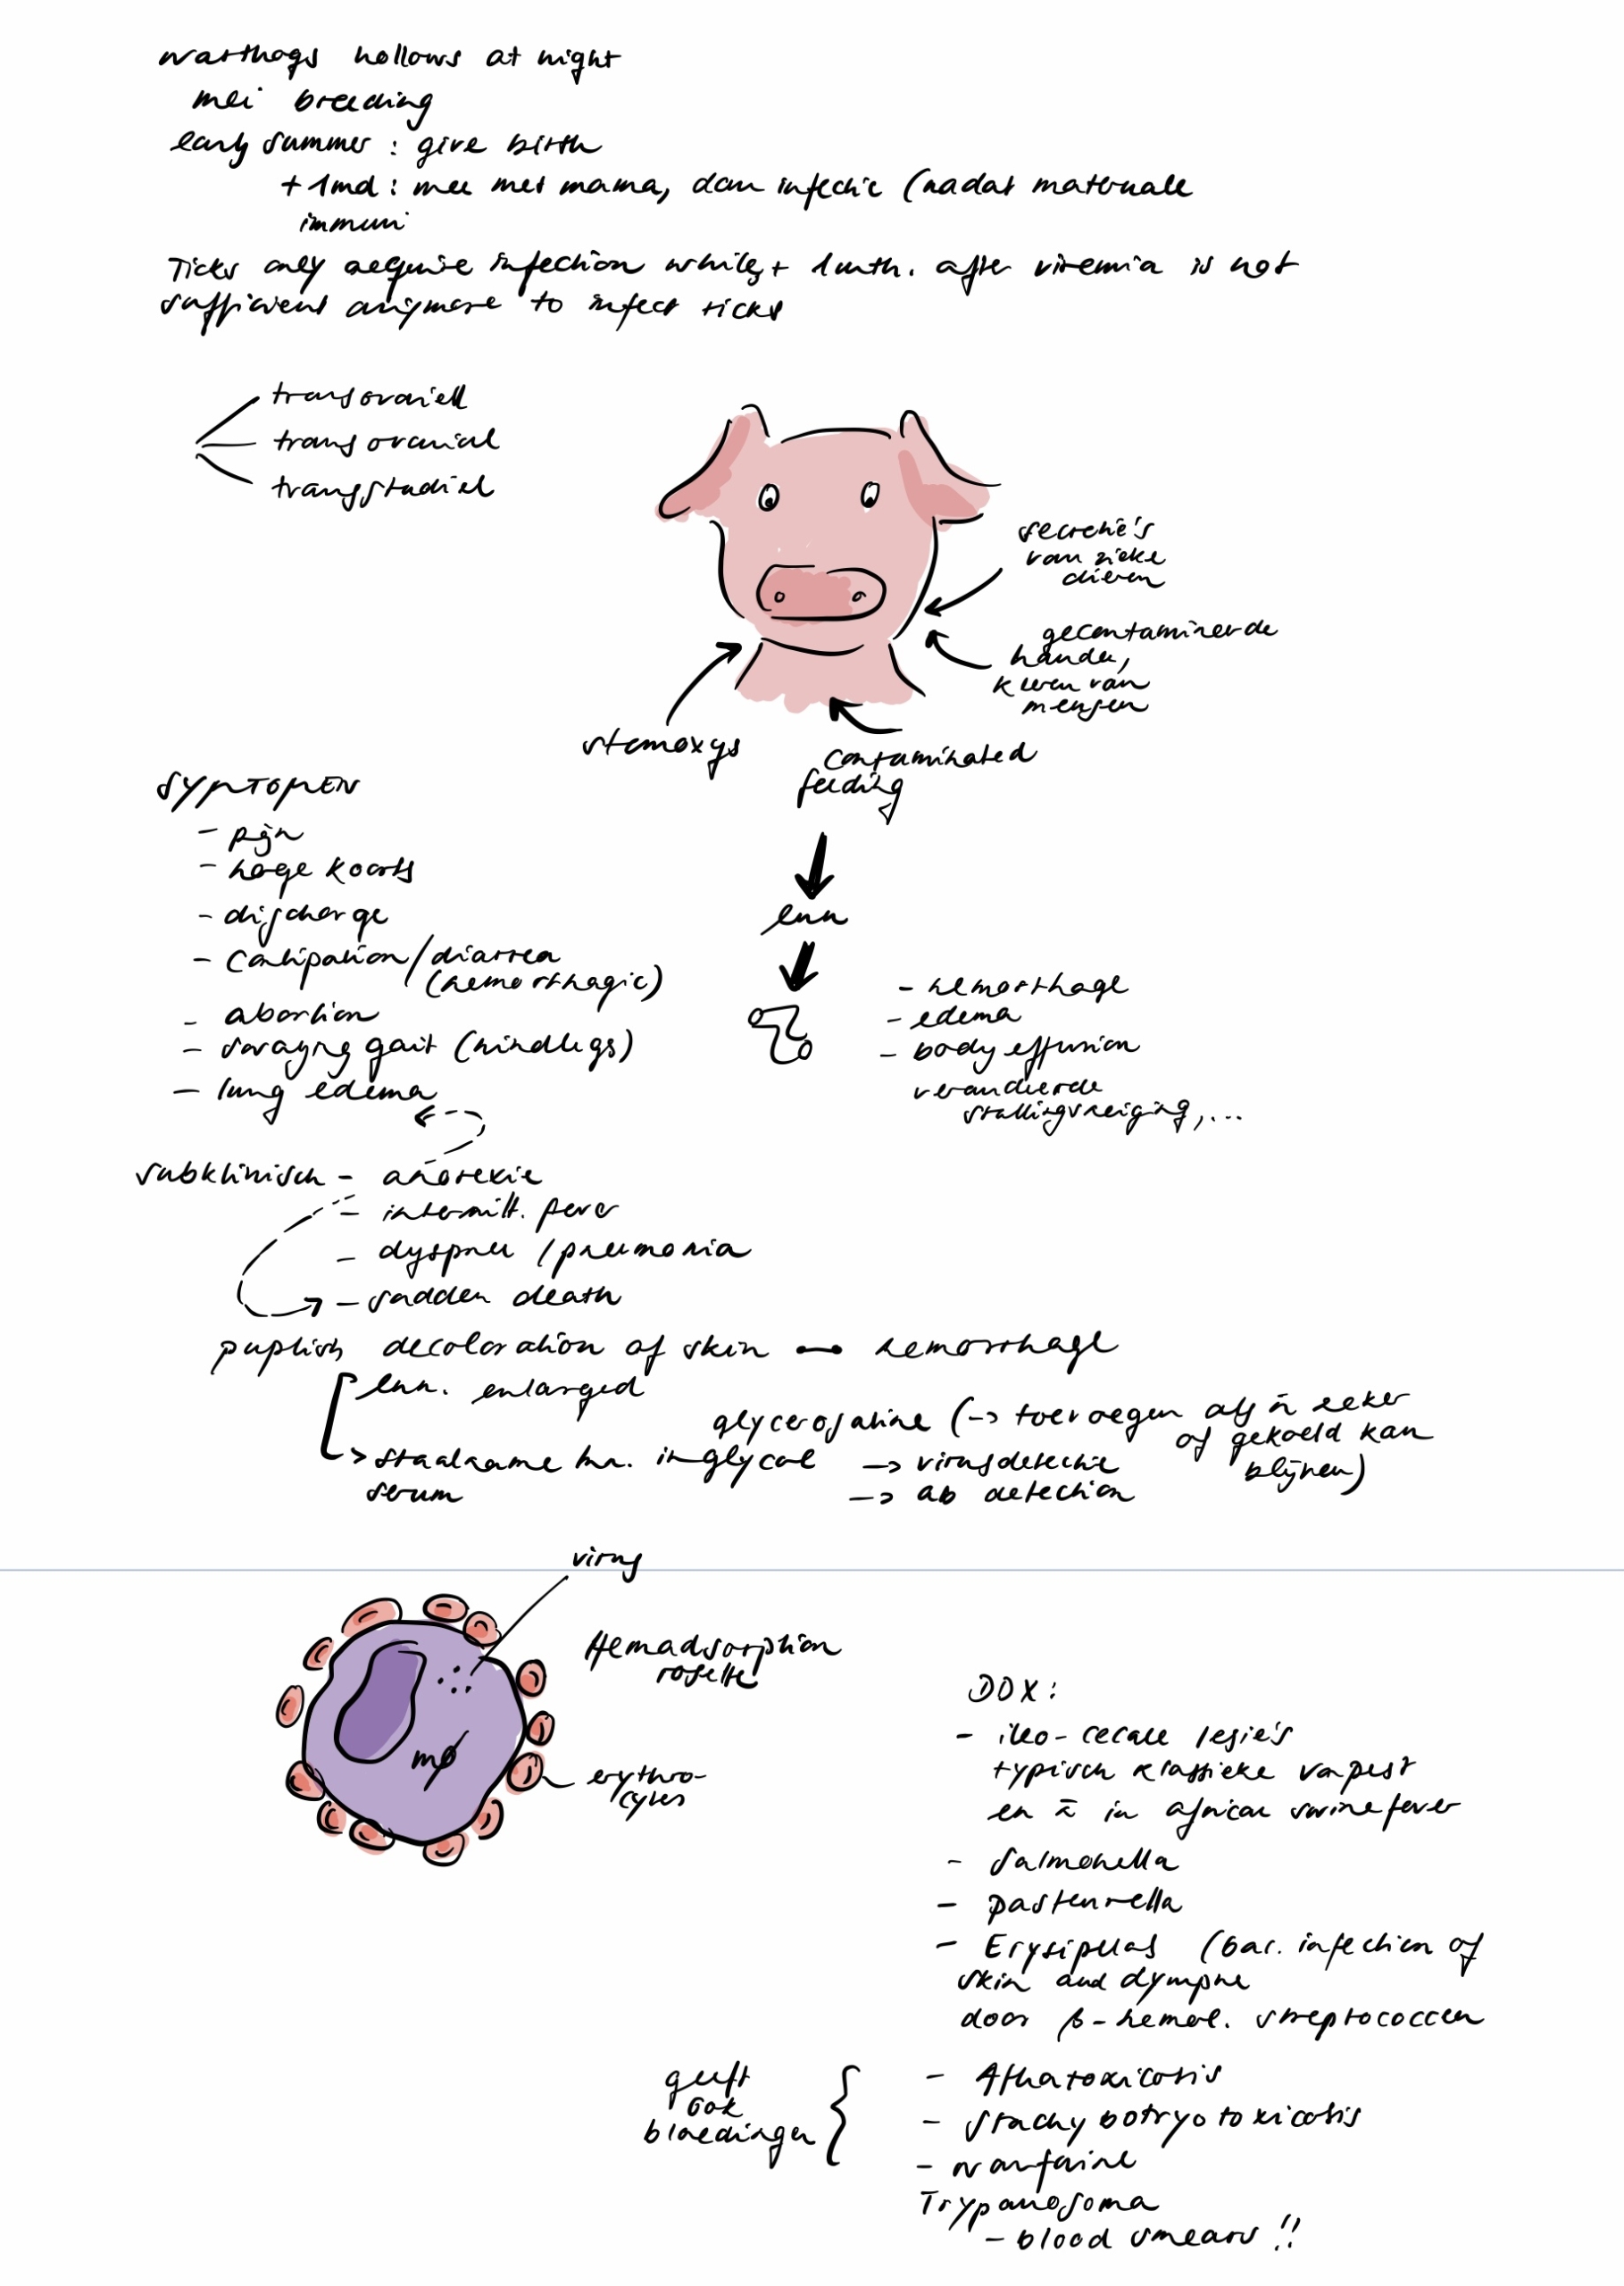 warthogs hollows at night
mei breeding
early summer : give birth
+ 1md : mee met mama, dan infectie (nadat maternale
immuni
Ticks only acquire infection while + 1mth. after viremia is not
sufficient anymore to infect ticks
transovariell
transovarial
transstadiel
secretie's
van zieke
dieren
gecontamineerde
handen,
kleren van
mensen
stomoxys
contaminated
feeding
SYMPTOMEN
- pijn
- hoge koorts
- discharge
- Constipation/diarrea
(hemorrhagic)
- abortion
- swaying gait (hindlegs)
- lung edema
lnn
- hemorrhage
- edema
- body effusion
veranderde
stollingsneiging,...
subklinisch - anorexie
- intermitt. fever
- dyspnee / pneumonia
- sudden death
puplish decoloration of skin hemorrhage
lnn. enlarged
glycerosaline (-> toevoegen als ñ zeker
of gekoeld kan
blijven)
-> staalname lnn. in glycol -> virusdetectie
serum -> ab detection
virus
Hemadsorption
rosette
mø
erythro-
cytes
DDX:
- ileo-cecale lesie's
typisch klassieke varpest
en ñ in african swine fever
- Salmonella
- pasteurella
- Erysipelas (bac. infection of
skin and dymphe
door β-hemol. streptococcen
geeft
ook
bloedingen
- Aflatoxicosis
- stachybotryotoxicosis
- warfarine
Trypanosoma
- blood smears !!